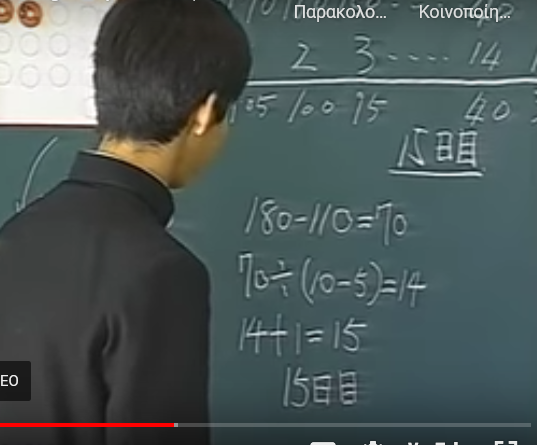 Παρακολο... Κοινοποίη...
2 3 ···· 14
105 100 95 40
15日目
180-110=70
70÷(10-5)=14
14+1=15
15日目
EO